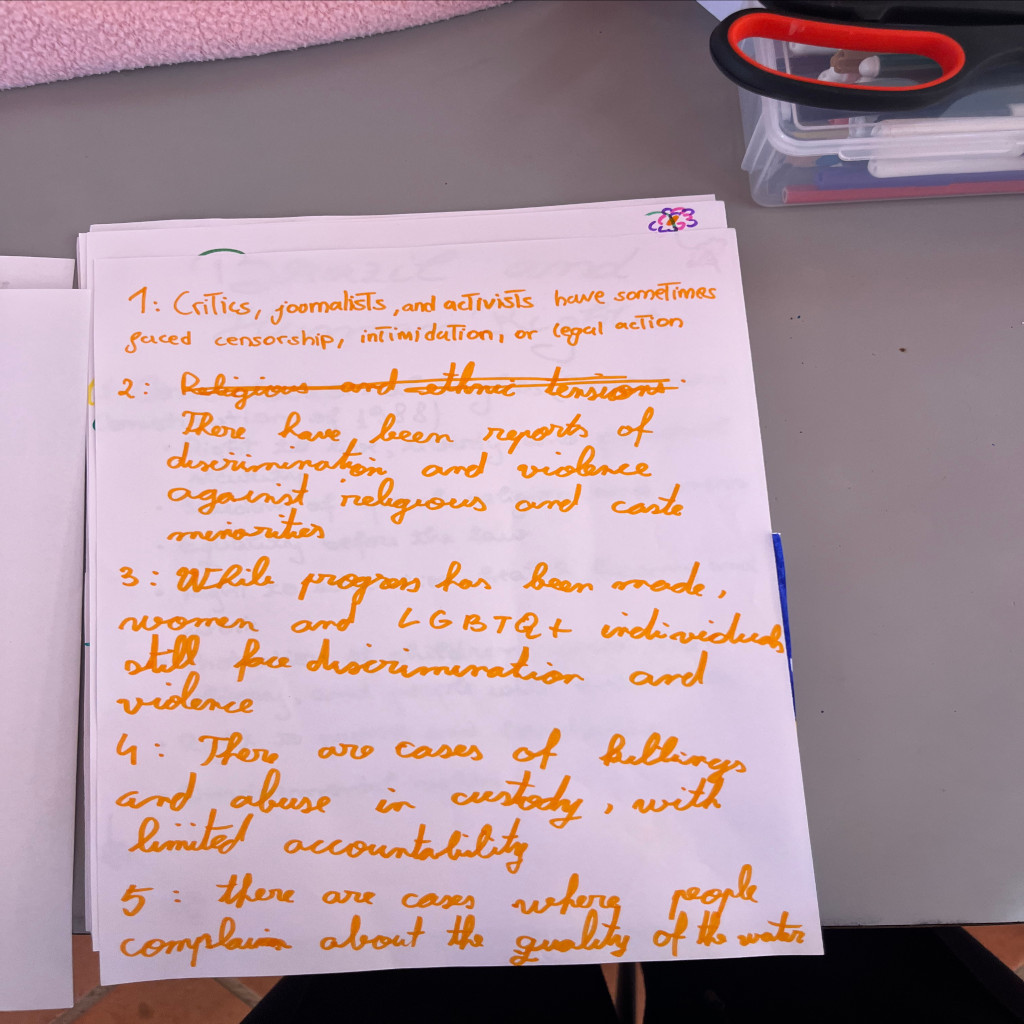 1: Critics, joomalists, and activists have sometimes
faced censorship, intimidation, or legal action
2: Religious and ethnic tensions.
There have been reports of
discrimination and violence
against religious and caste
minorities
3: While progress has been made,
women and LGBTQ+ individuals
still face discrimination and
violence
4: There are cases of killings
and abuse in custody, with
limited accountability
5: there are cases where people
complain about the quality of the water